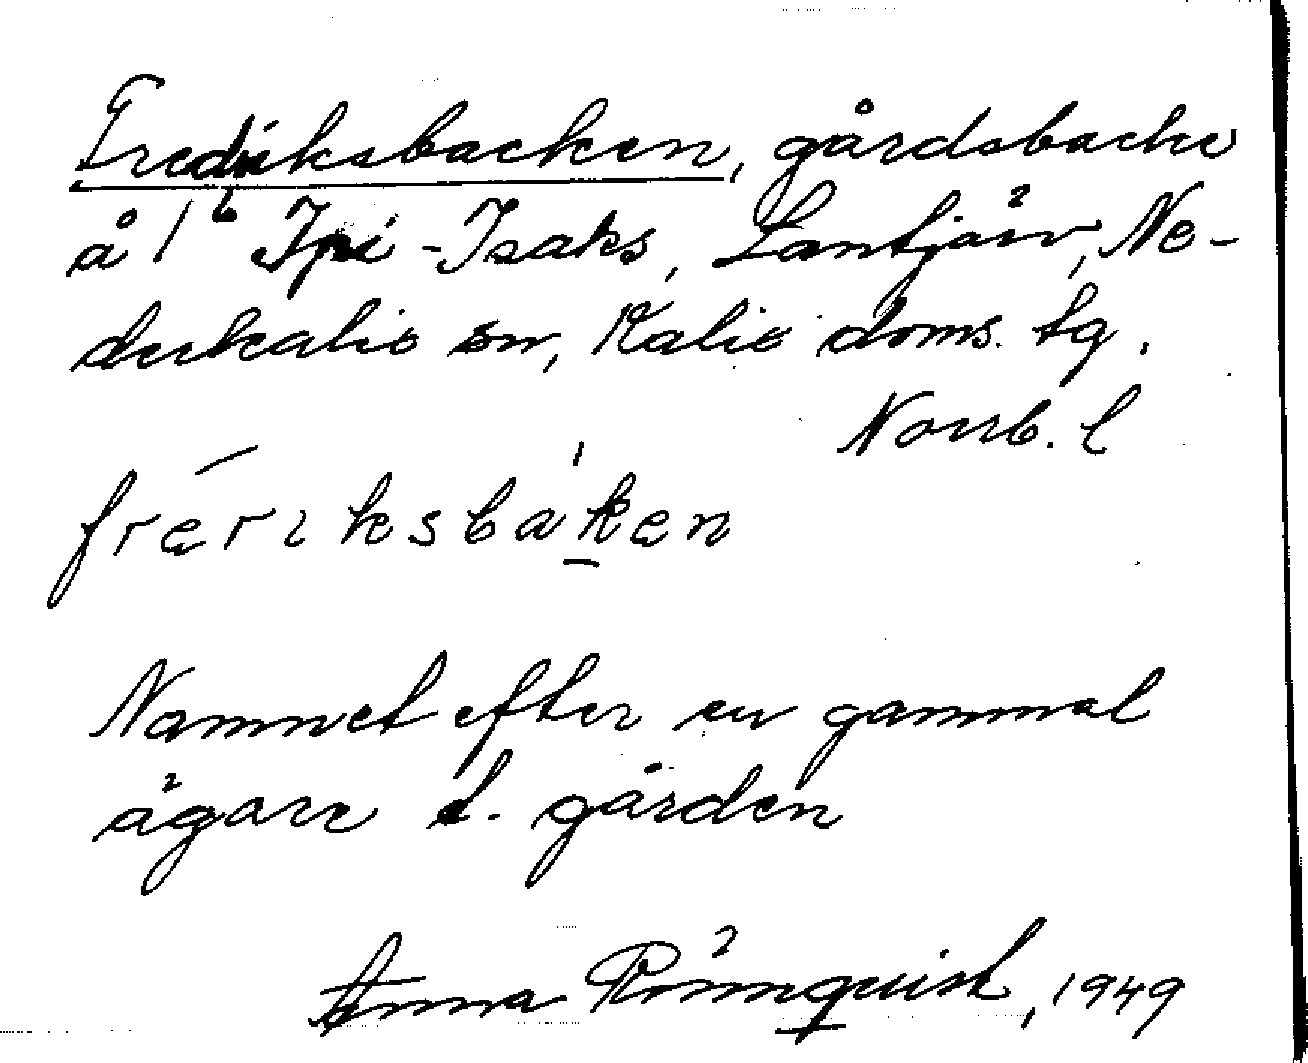 Fredriksbacken, gårdsbacke
å 1b Ipi-Isaks, Lantjärv, Ne-
derkalix sn, Kalix doms. tg.
Norrb. l
frēriksbáken
Namnet efter en gammal
ägare t. gården
Anna Rönnquist, 1949